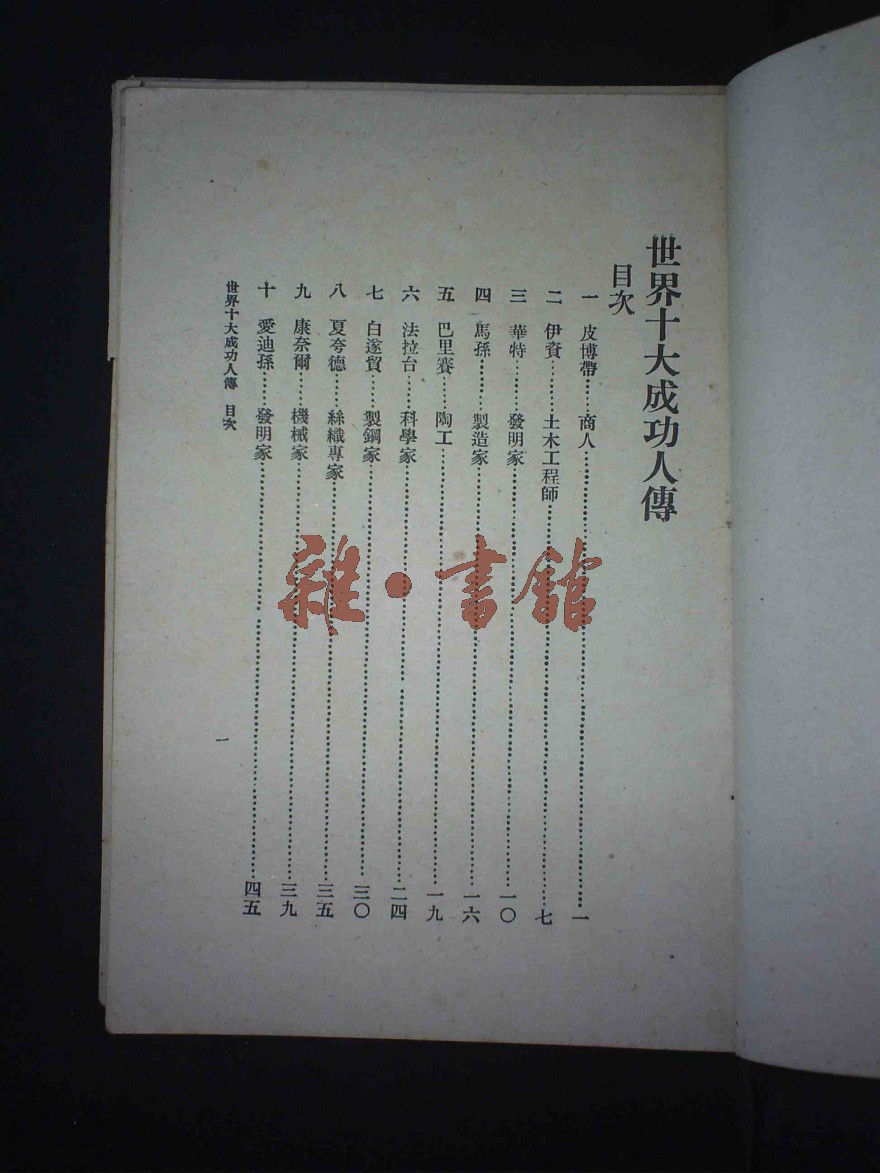 世界十大成功人傳
目次
一 皮博帶……商人……一
二 伊資……土木工程師……七
三 華特……發明家……一〇
四 馬孫……製造家……一六
五 巴里賽……陶工……一九
六 法拉台……科學家……二四
七 白遂貿……製鋼家……三〇
八 夏夸德……絲織專家……三五
九 康奈爾……機械家……三九
十 愛迪孫……發明家……四五
世界十大成功人傳 目次
一
雜·書館